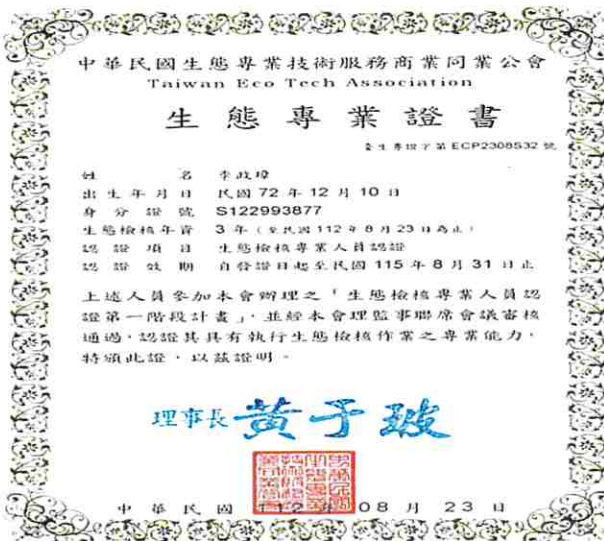 中華民國生態專業技術服務商業同業公會
Taiwan Eco Tech Association
生態專業證書
臺生專證字第ECP2308S32號
姓名 李政璋
出生年月日 民國72年12月10日
身分證號 S122993877
生態檢核年資 3年（至民國112年8月23日為止）
認證項目 生態檢核專業人員認證
認證效期 自發證日起至民國115年8月31日止
上述人員參加本會辦理之「生態檢核專業人員認
證第一階段計畫」，並經本會理監事聯席會議審核
通過，認證其具有執行生態檢核作業之專業能力，
特頒此證，以茲證明。
理事長 黃于玻
中華民國112年08月23日